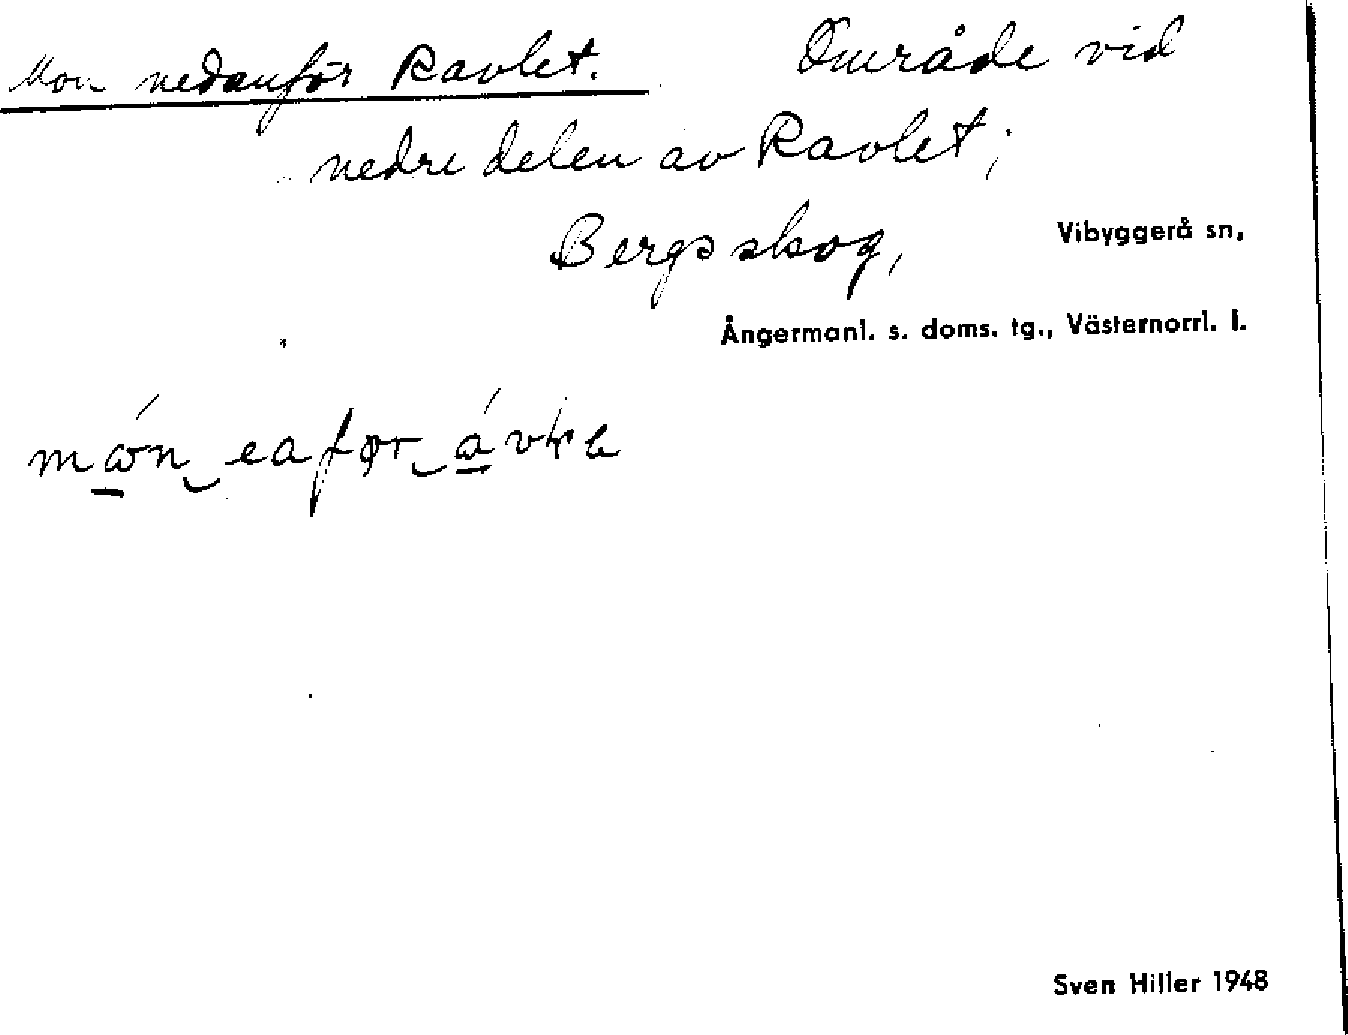 Mon nedanför Ravlet. Område vid
nedre delen av Ravlet;
Bergsskog,
Vibyggerå sn,
Ångermanl. s. doms. tg., Västernorrl. l.
Sven Hiller 1948